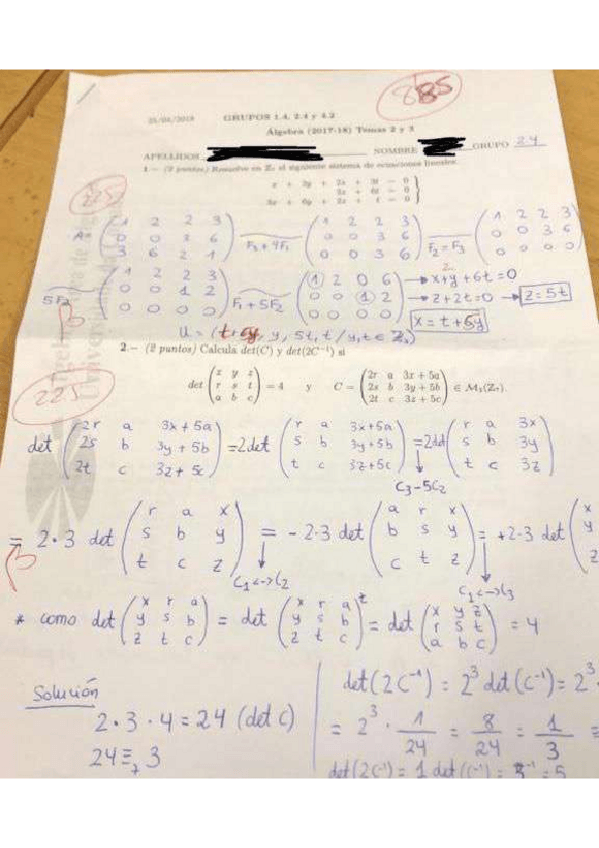 885
25/04/2018 GRUPOS 1.4, 2.4 y 4.2
Álgebra (2017-18) Temas 2 y 3
APELLIDOS NOMBRE GRUPO 2.4
1.- (2 puntos) Resuelve en Z₇ el siguiente sistema de ecuaciones lineales.
x + 2y + 2z + 3t = 0
3z + 6t = 0
3x + 6y + 2z + t = 0
225
A = (1 2 2 3; 0 0 3 6; 3 6 2 1) F₃+4F₁ (1 2 2 3; 0 0 3 6; 0 0 3 6) F₂=F₃ (1 2 2 3; 0 0 3 6; 0 0 0 0)
5F₂ (1 2 2 3; 0 0 1 2; 0 0 0 0) F₁+5F₂ (1 2 0 6; 0 0 1 2; 0 0 0 0) → x+2y+6t=0
→ z+2t=0 → z=5t
x=t+5y
U = (t+5y, y, 5t, t / y,t ∈ Z₇)
2.- (2 puntos) Calcula det(C) y det(2C⁻¹) si
det (x y z; r s t; a b c) = 4 y C = (2r a 3x+5a; 2s b 3y+5b; 2t c 3z+5c) ∈ M₃(Z₇).
225
det (2r a 3x+5a; 2s b 3y+5b; 2t c 3z+5c) = 2det (r a 3x+5a; s b 3y+5b; t c 3z+5c) = 2det (r a 3x; s b 3y; t c 3z)
C₃-5C₂
= 2·3 det (r a x; s b y; t c z) = -2·3 det (a r x; b s y; c t z) = +2·3 det (x y z
C₁<->C₂ C₁<->C₃
* como det (x r a; y s b; z t c) = det (x r a; y s b; z t c)ᵗ = det (x y z; r s t; a b c) = 4
Solución
2·3·4 = 24 (det C)
24 ≡₇ 3
det(2C⁻¹) = 2³ det(C⁻¹) = 2³
= 2³ · 1/24 = 8/24 = 1/3 =
det(2C⁻¹) = 1 det(C⁻¹) = 3⁻¹ = 5